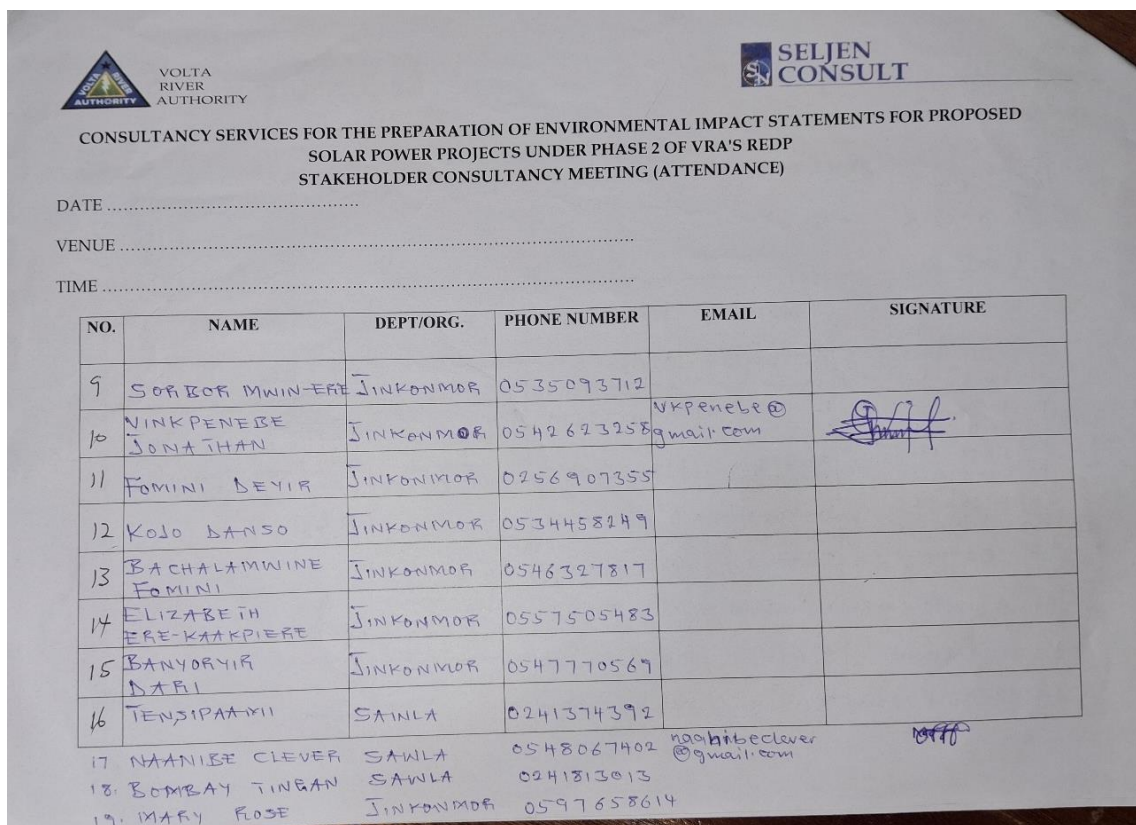 VOLTA
RIVER
AUTHORITY
VOLTA
AUTHORITY
SELJEN
CONSULT
CONSULTANCY SERVICES FOR THE PREPARATION OF ENVIRONMENTAL IMPACT STATEMENTS FOR PROPOSED
SOLAR POWER PROJECTS UNDER PHASE 2 OF VRA'S REDP
STAKEHOLDER CONSULTANCY MEETING (ATTENDANCE)
DATE ...............................................
VENUE ...............................................................................................
TIME ..................................................................................................
NO. NAME DEPT/ORG. PHONE NUMBER EMAIL SIGNATURE
9 SORBOR MWIN-ERE JINKONMOR 0535093712
10 VINKPENEBE JONATHAN JINKONMOR 0542623258 vkpenebe@gmail.com
11 FOMINI DEYIR JINKONMOR 0256907355
12 KOJO DANSO JINKONMOR 0534458249
13 BACHALAMWINE FOMINI JINKONMOR 0546327817
14 ELIZABETH ERE-KAAKPIERE JINKONMOR 0557505483
15 BANYORYIR DARI JINKONMOR 0547770569
16 SAWLA 0241374392
17 NAANIBE CLEVER SAWLA 0548067402 @gmail.com
18. BOMBAY TINGAN SAWLA 0241813013
19. MARY ROSE JINKONMOR 0597658614